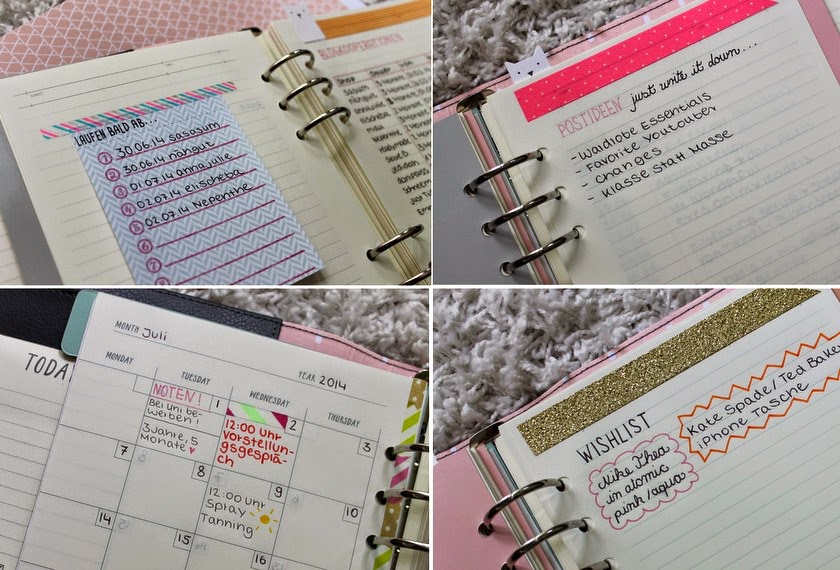 LAUFEN BALD AB...
1 30.06.14 sasasum
2 30.06.14 nähgut
3 01.07.14 anna.julie
4 02.07.14 elischeba
5 02.07.14 Nepenthe
6
7
8
BLOGKOOPERATIONEN
Shop
POSTIDEEN just write it down...
- Wardrobe Essentials
- Favorite Youtuber
- Changes
- Klasse statt Masse
MONTH Juli
YEAR 2014
MONDAY TUESDAY WEDNESDAY THURSDAY
TODA
NOTEN!
Bei Uni be-
werben!
3 Jahre, 5
Monate ♥
1
12:00 Uhr
Vorstellun-
gsgesprä-
ch
2
3
7
8
12:00 Uhr
Spray
Tanning
9
10
14
15
16
WISHLIST
Nike Thea
in atomic
pink/aqua
Kate Spade/Ted Baker
iPhone Tasche